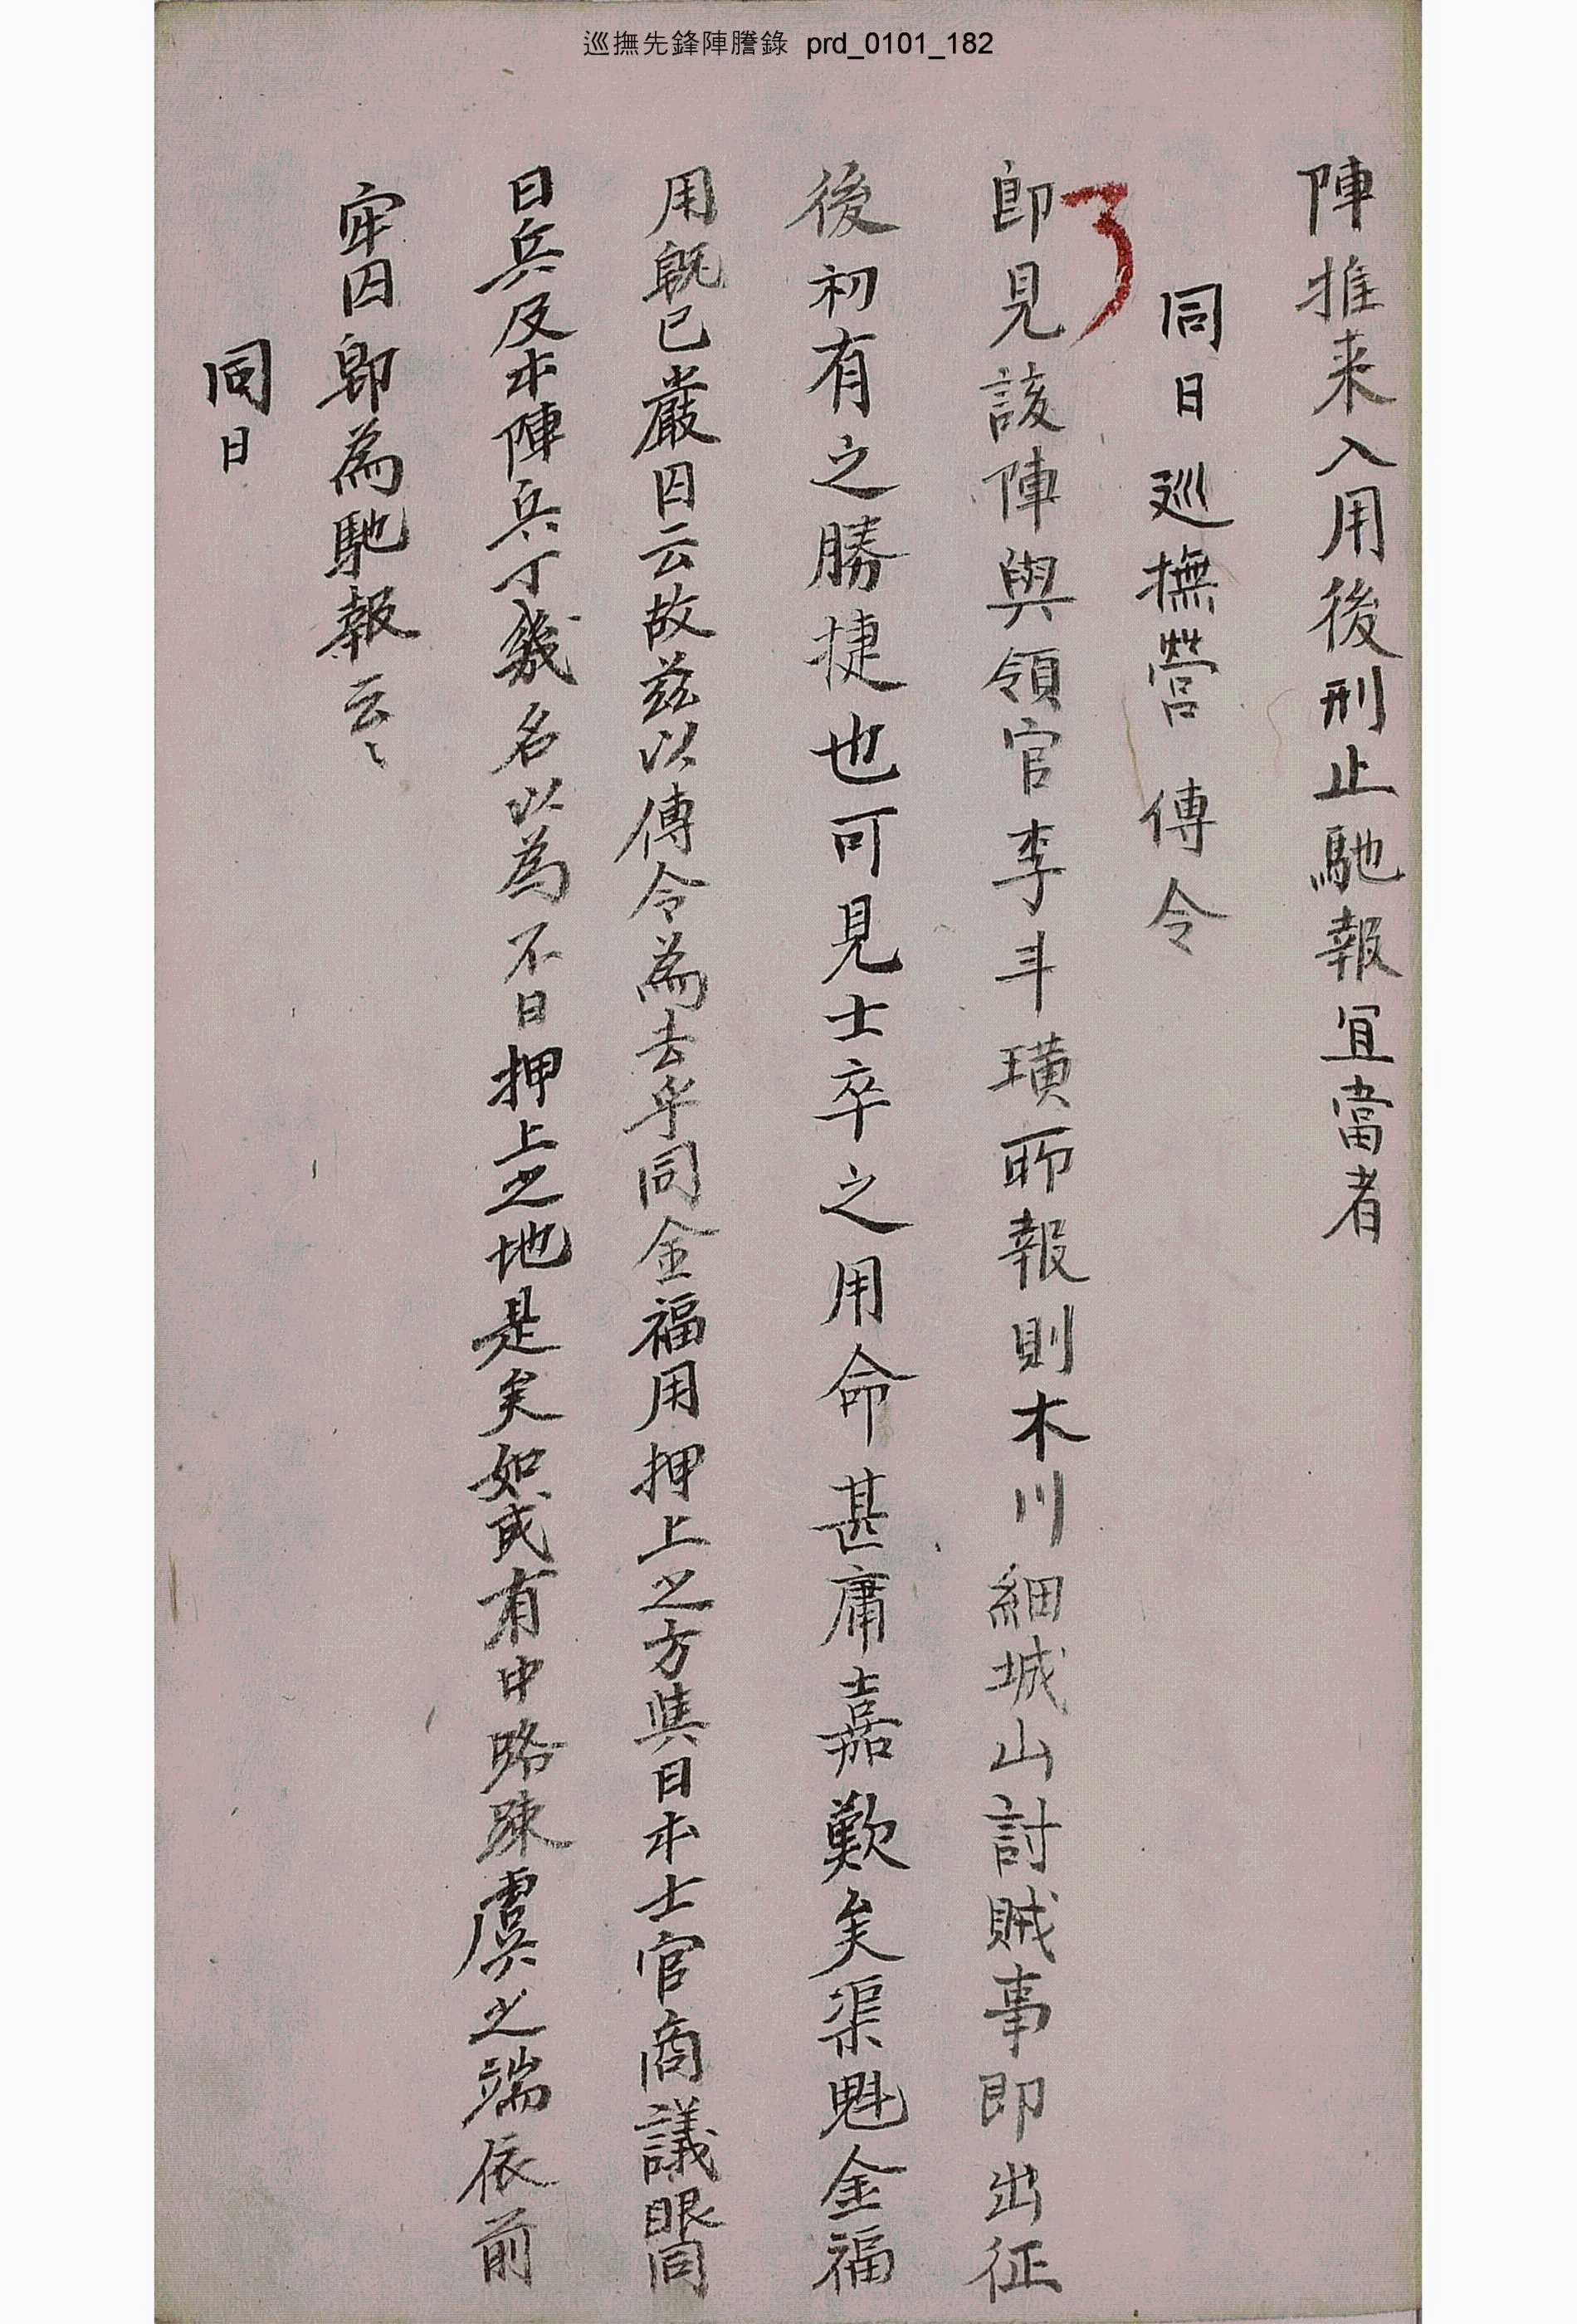 巡撫先鋒陣謄錄 prd_0101_182
陣推来入用後刑止馳報宜當者
同日巡撫營 傳令
卽見該陣與領官李斗璜所報則木川細城山討賊事即出征
後初有之勝捷也可見士卒之用命甚庸嘉歎矣渠魁金福
用旣已嚴囚云故玆以傳令爲去乎同金福用押上之方與日本士官商議眼同
日兵及本陣兵丁幾名以爲不日押上之地是矣如或有中路踈虞之端依前
牢囚卽爲馳報云〻
同日